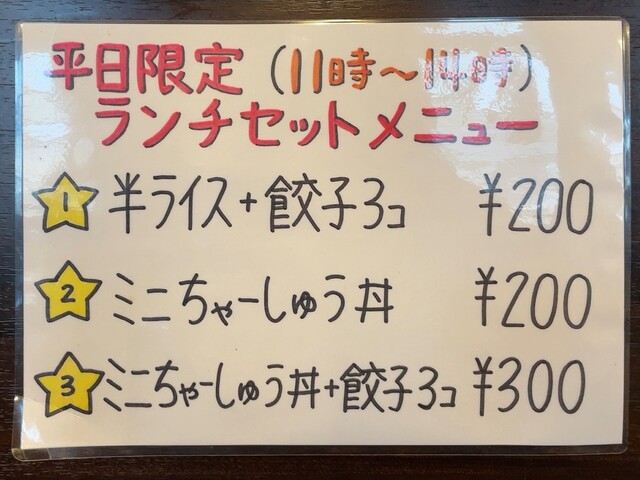 平日限定（11時〜14時）
ランチセットメニュー
1 半ライス+餃子3コ ¥200
2 ミニちゃーしゅう丼 ¥200
3 ミニちゃーしゅう丼+餃子3コ ¥300